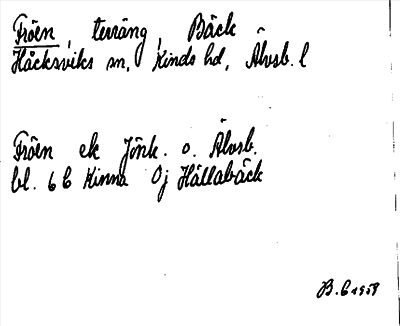 Fröen, terräng, Bäck
Håcksviks sn, Kinds hd, Älvsb. l
Fröen ek Jönk. o. Älvsb.
bl. 6 C Kinna 0j Hällabäck
B. C 1958